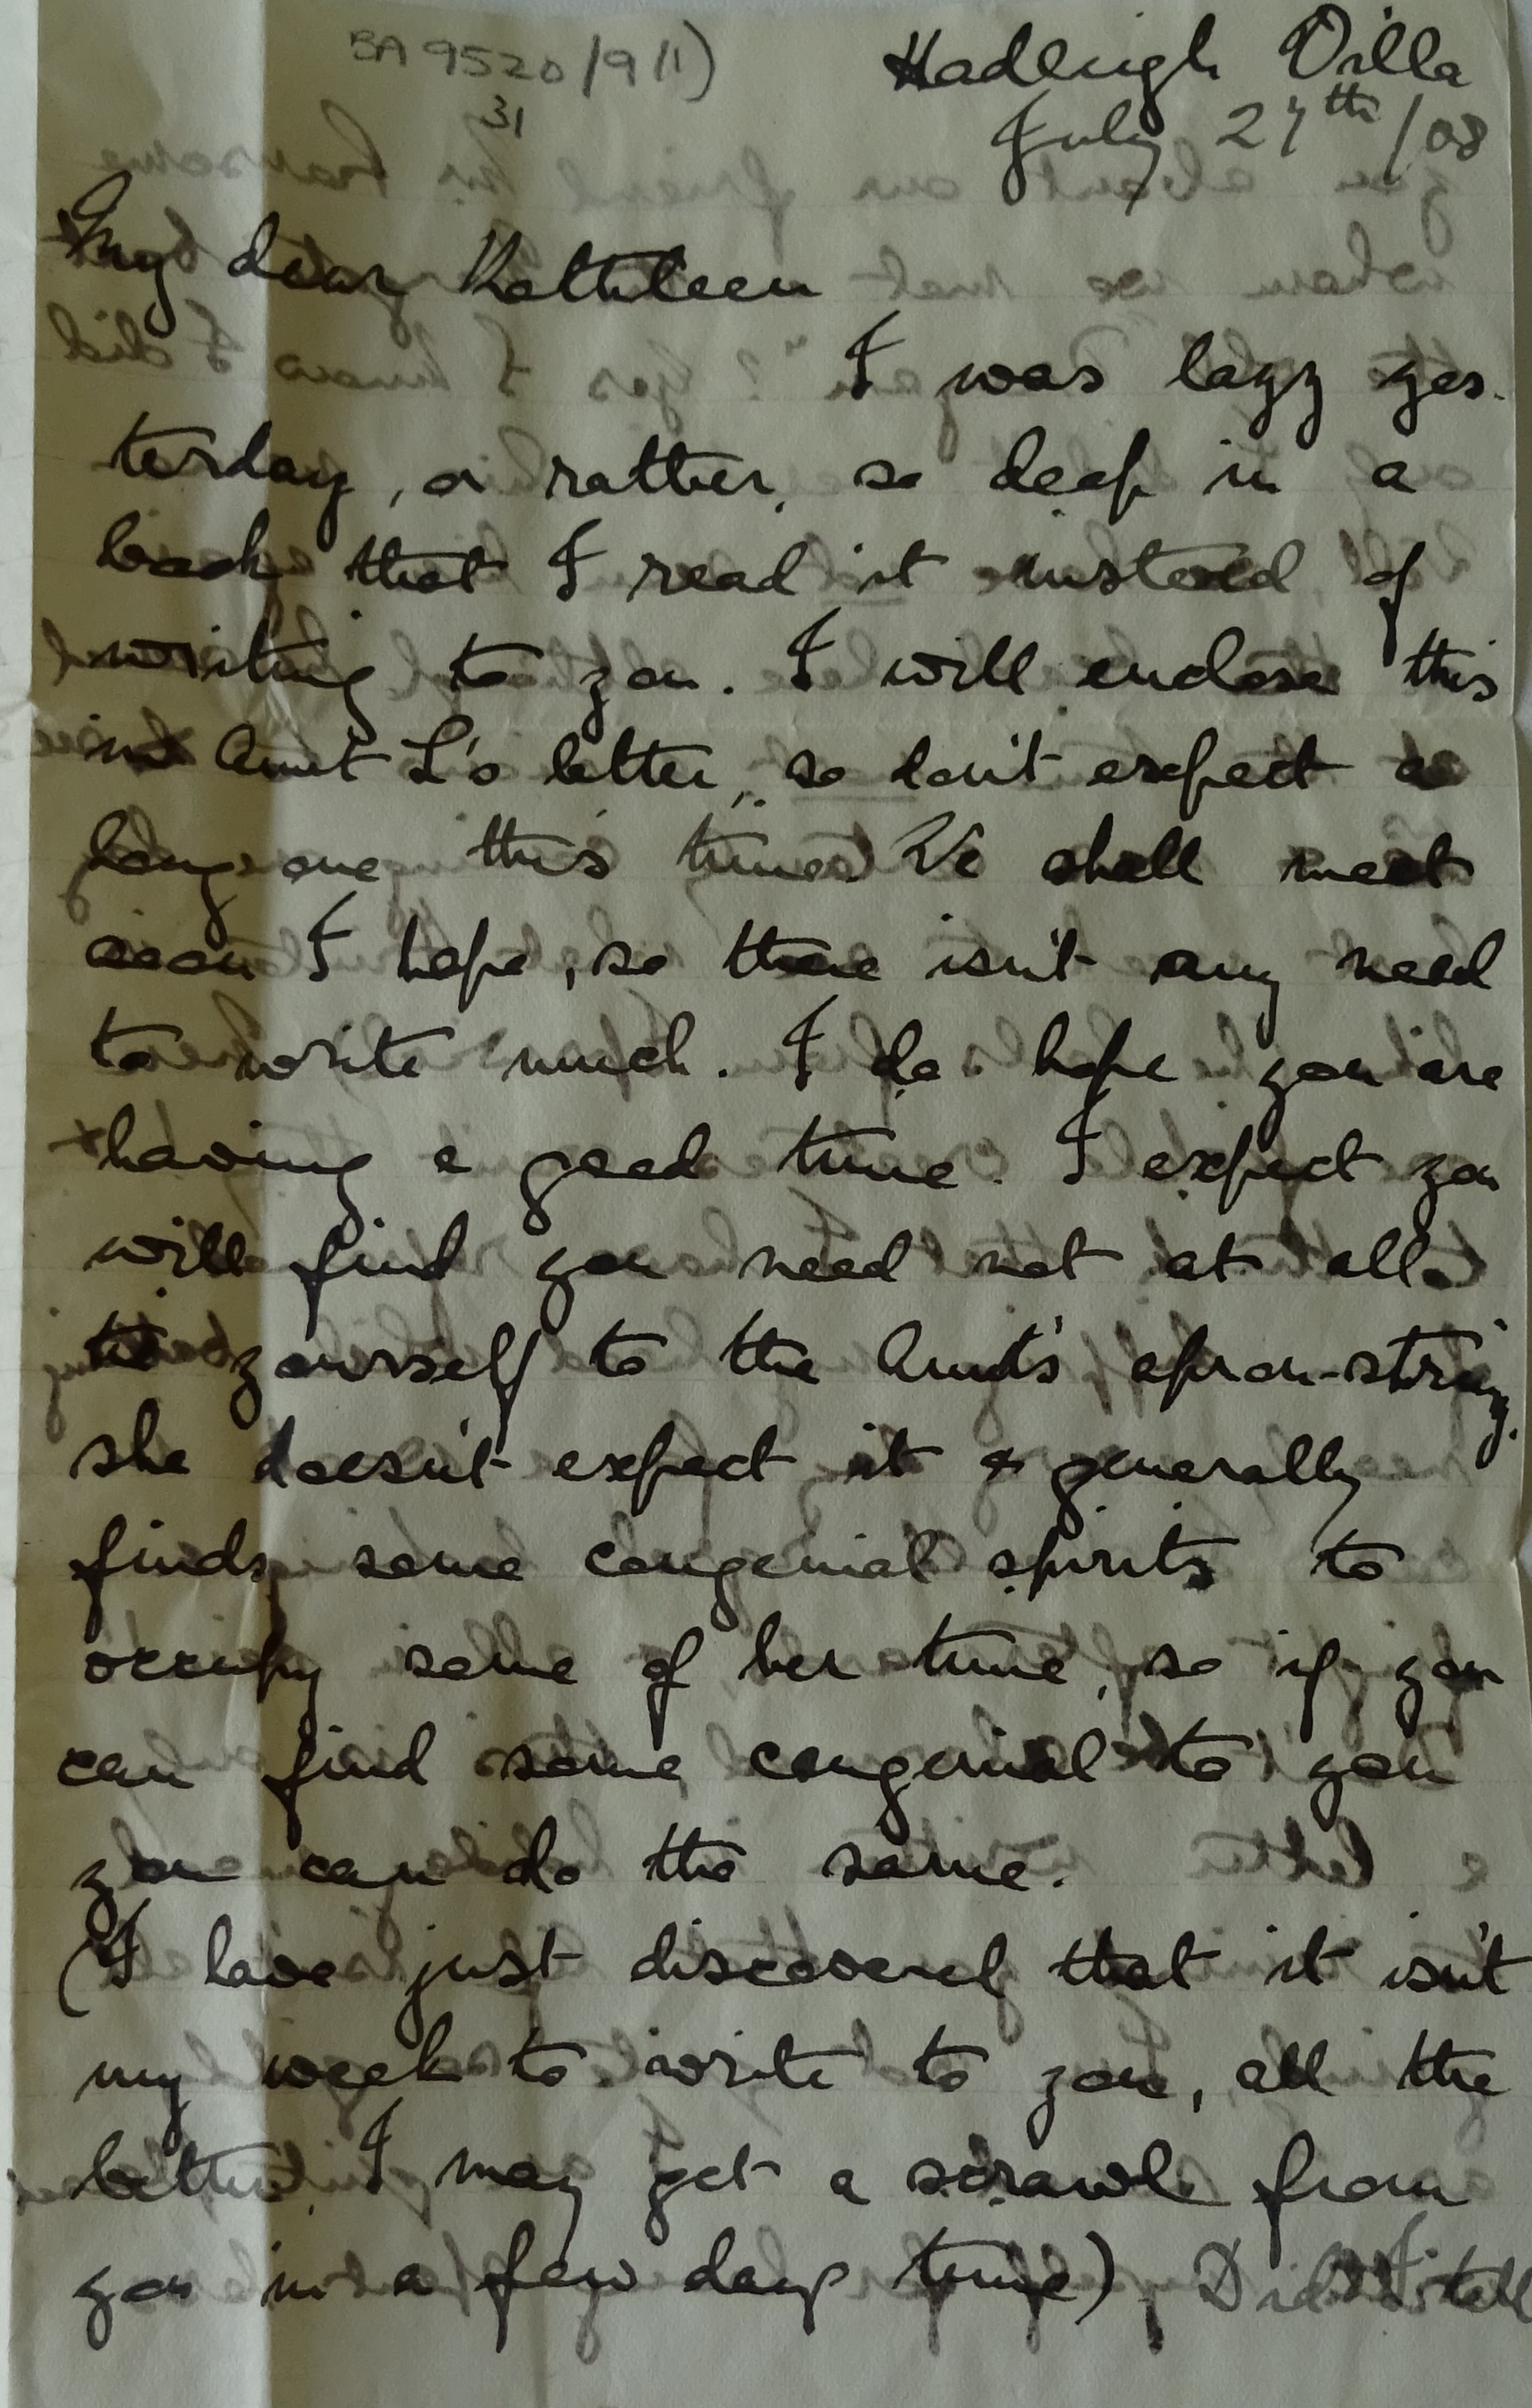 BA 9520/9(1)
31
Hadleigh Villa
July 27th/08
My dear Kathleen
I was lazy yes-
terday, or rather, so deep in a
book that I read it instead of
writing to you. I will enclose this
in Aunt L's letter, so don't expect a
long one this time. We shall meet
soon I hope, so there isn't any need
to write much. I do hope you are
having a good time. I expect you
will find you need not at all
tie yourself to the Aunt's apron-string,
she doesn't expect it & generally
finds some congenial spirits to
occupy some of her time, so if you
can find some congenial to you
you can do the same.
(I have just discovered that it isn't
my week to write to you, all the
better, I may get a scrawl from
you in a few days time) Did I tell